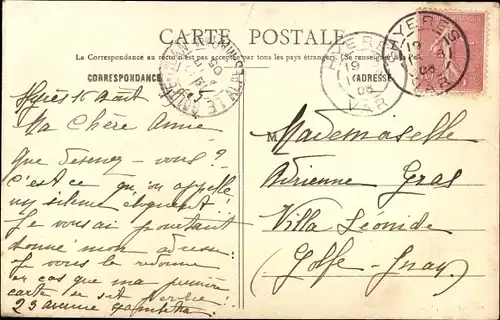 CARTE POSTALE
La Correspondance au recto n'est pas acceptée par tous les pays étrangers. (Se renseigner
CORRESPONDANCE
ADRESSE
HYERES
VAR
HYERES
VAR
Hyères 16 Août
Ma Chère Amie
Que devenez-vous ?
C'est ce qu'on appelle
un silence éloquent !
Je vous ai pourtant
donné mon adresse.
Je vous la redonne
en cas que ma première
carte en soit
23 avenue Gambetta
Mademoiselle
Adrienne Gras
Villa Léonide
Golfe-Juan